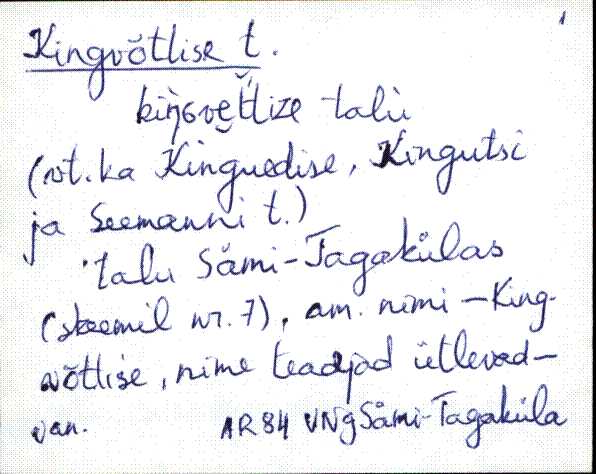 1
Kingvõtlise t.
talu
(vt. ka Kinguedise, Kingutsi
ja Seemanni t.)
talu Sämi-Tagakülas
(skeemil nr. 7), am. nimi – King-
võtlise, nime teadjad ütlevad –
van. AR 84 VNg Sämi-Tagaküla